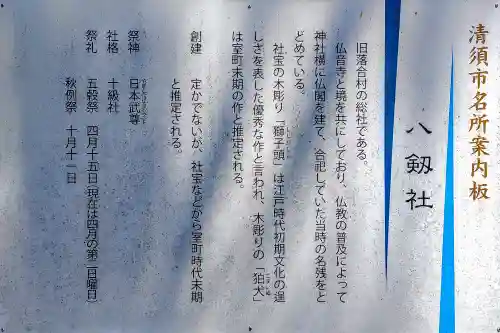 清須市名所案内板
八剱社
旧落合村の総社である。
仏音寺と境を共にしており、仏教の普及によって
神社横に仏閣を建て、合祀していた当時の名残をと
どめている。
社宝の木彫り「獅子頭」は江戸時代初期文化の逞
しさを表した優秀な作と言われ、木彫りの「狛犬」
は室町末期の作と推定される。
創建 定かでないが、社宝などから室町時代末期
と推定される。
祭神 日本武尊
社格 十級社
祭礼 五穀祭 四月十五日(現在は四月の第二日曜日)
秋例祭 十月十一日